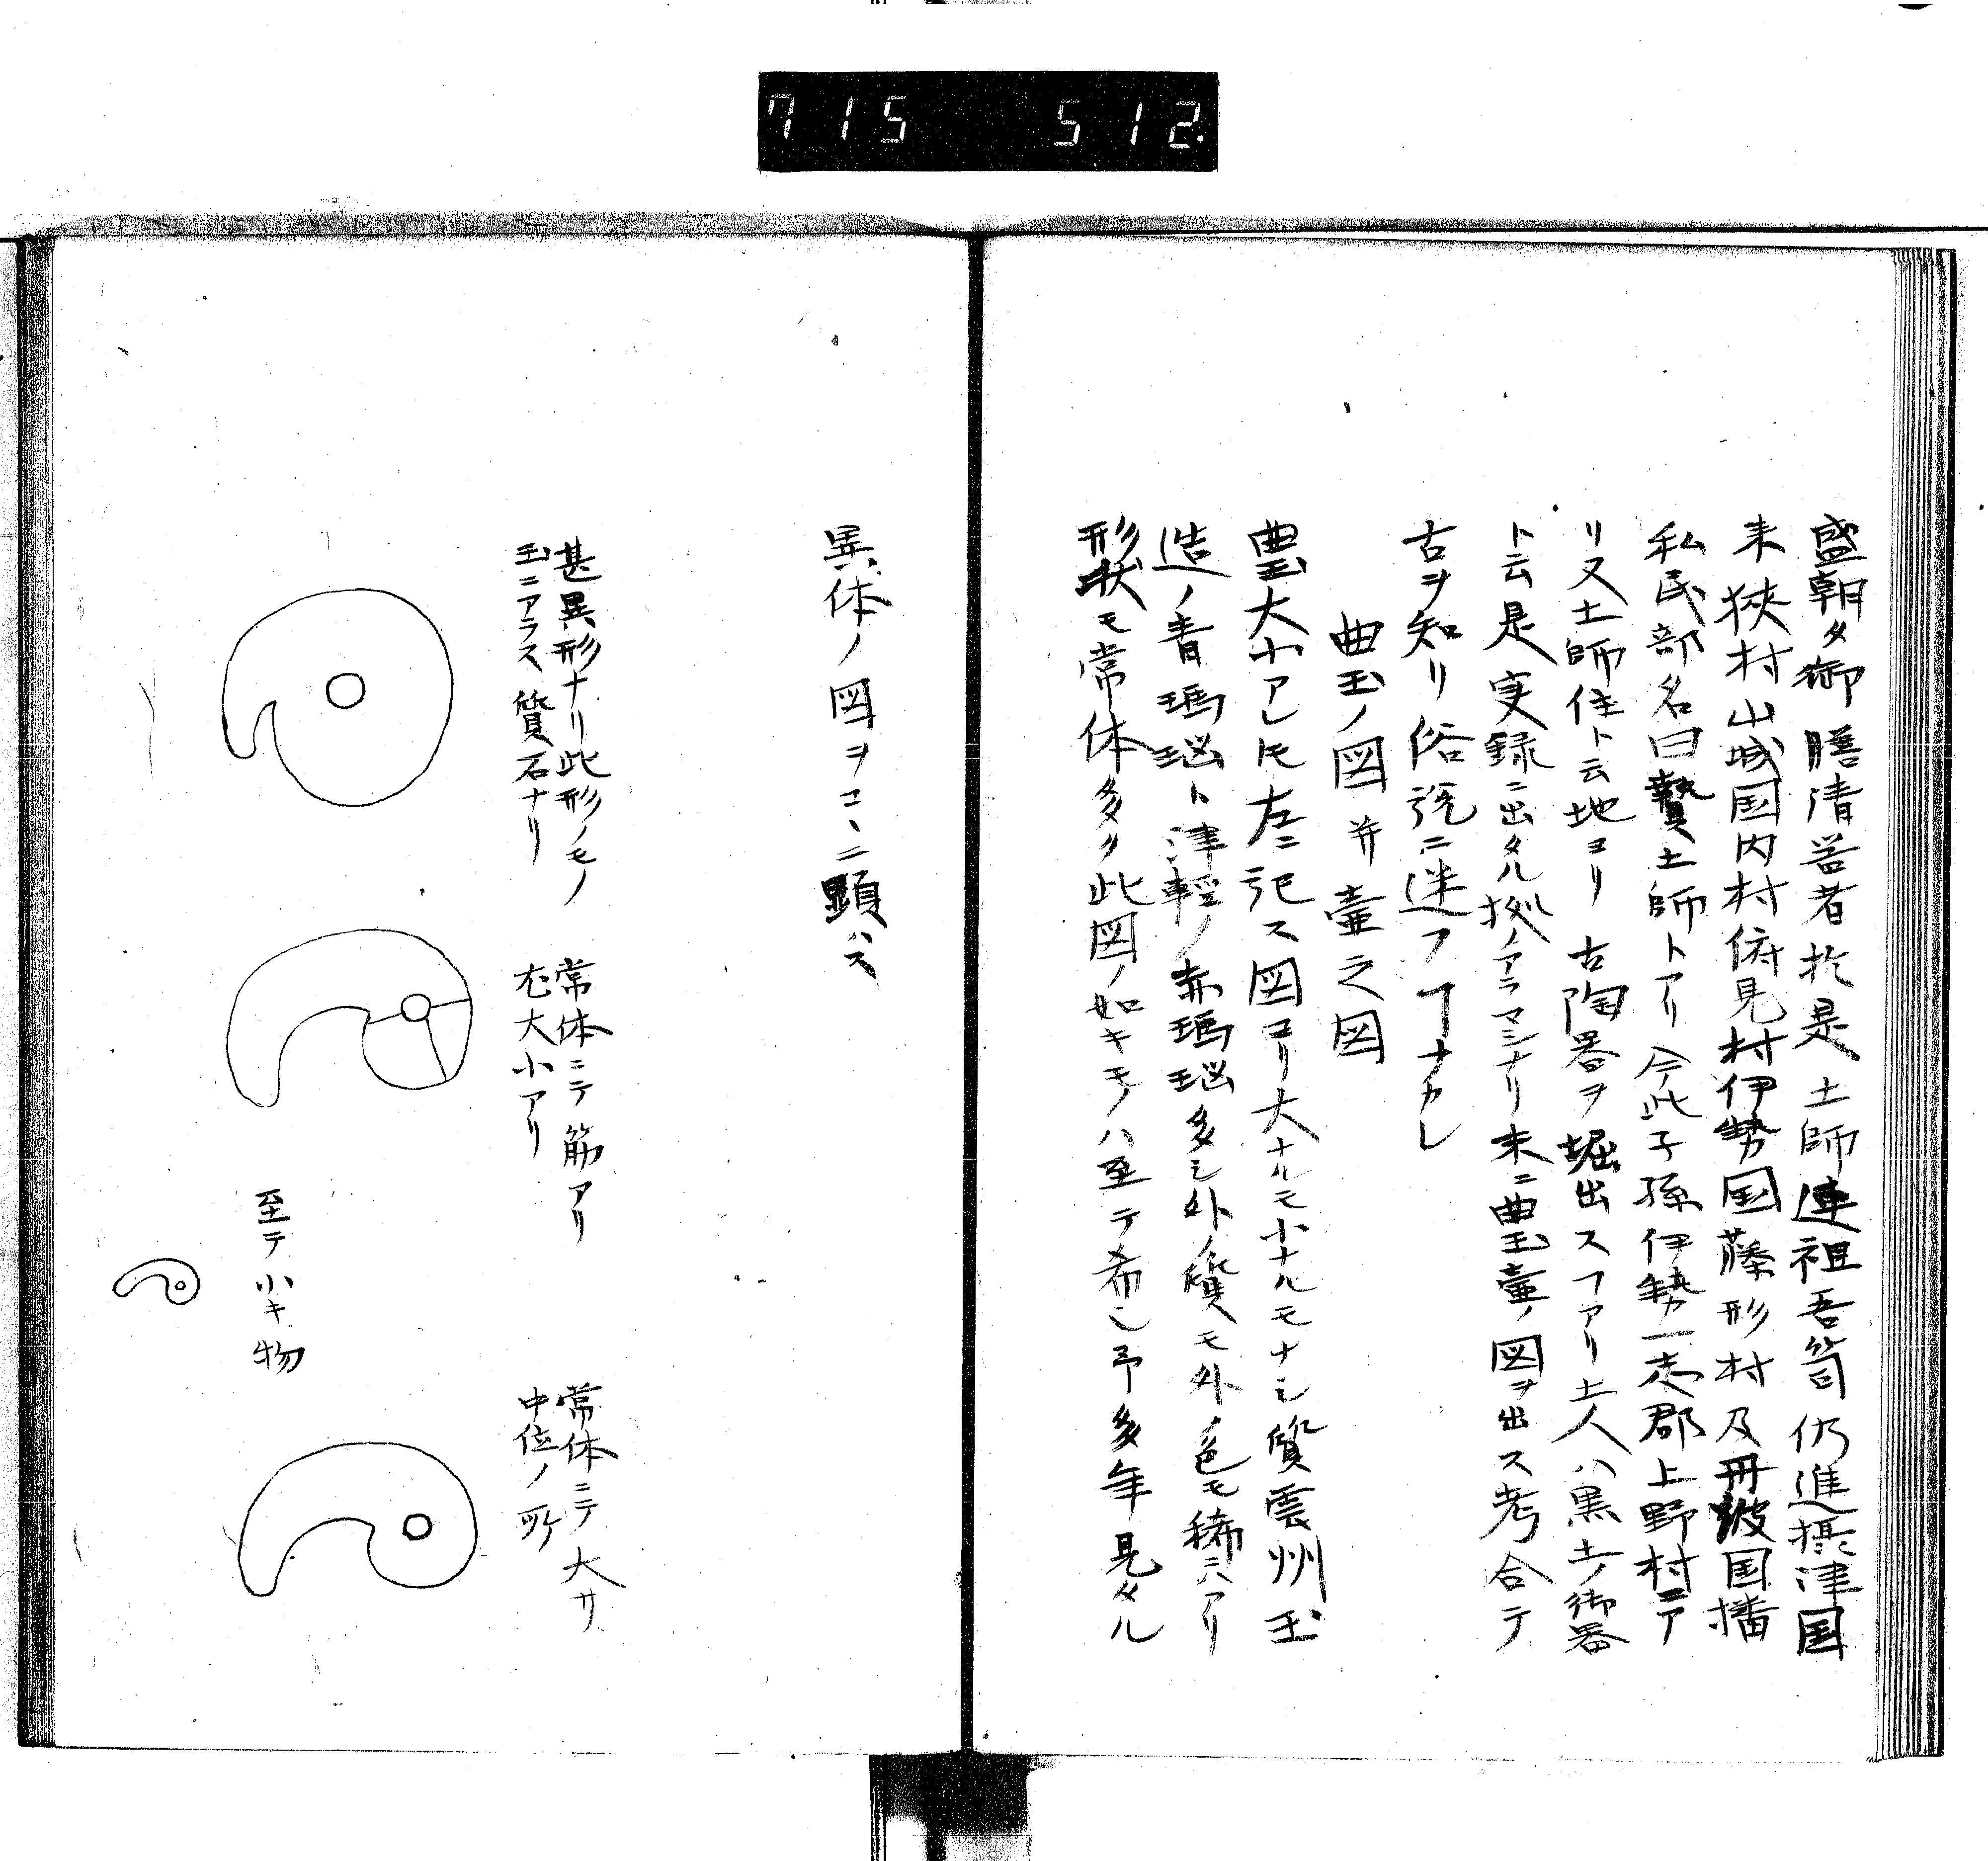 715 512.
盛朝夕御膳清器者於是土師連祖吾笥仍進摂津国
来狭村山城国内村俯見村伊勢国藤形村及丹波国播
私民部名曰贄土師トアリ今此子孫伊勢一志郡上野村ニア
リ又土師住ト云地ヨリ古陶器ヲ堀出スヿアリ土人ハ黒土ノ御器
ト云是実録ニ出タル拠ノアラマシナリ末ニ曲玉壷ノ図ヲ出ス考合テ
古ヲ知リ俗説ニ迷フヿナカレ
曲玉ノ図并壷之図
曲玉大小アレモ左ニ記ス図ヨリ大ナルモ小ナルモナシ質雲州玉
造ノ青瑪瑙ト津軽ノ赤瑪瑙多シ外ノ質モ外ノ色モ稀ニハアリ
形状モ常体多ク此図ノ如キモノハ至テ希也予多年見タル
異体ノ図ヲコヽニ顕ハス
甚異形ナリ此形ノモノ
玉ニアラス質石ナリ
常体ニテ筋アリ
尤大小アリ
至テ小キ物
常体ニテ大サ
中位ノ所